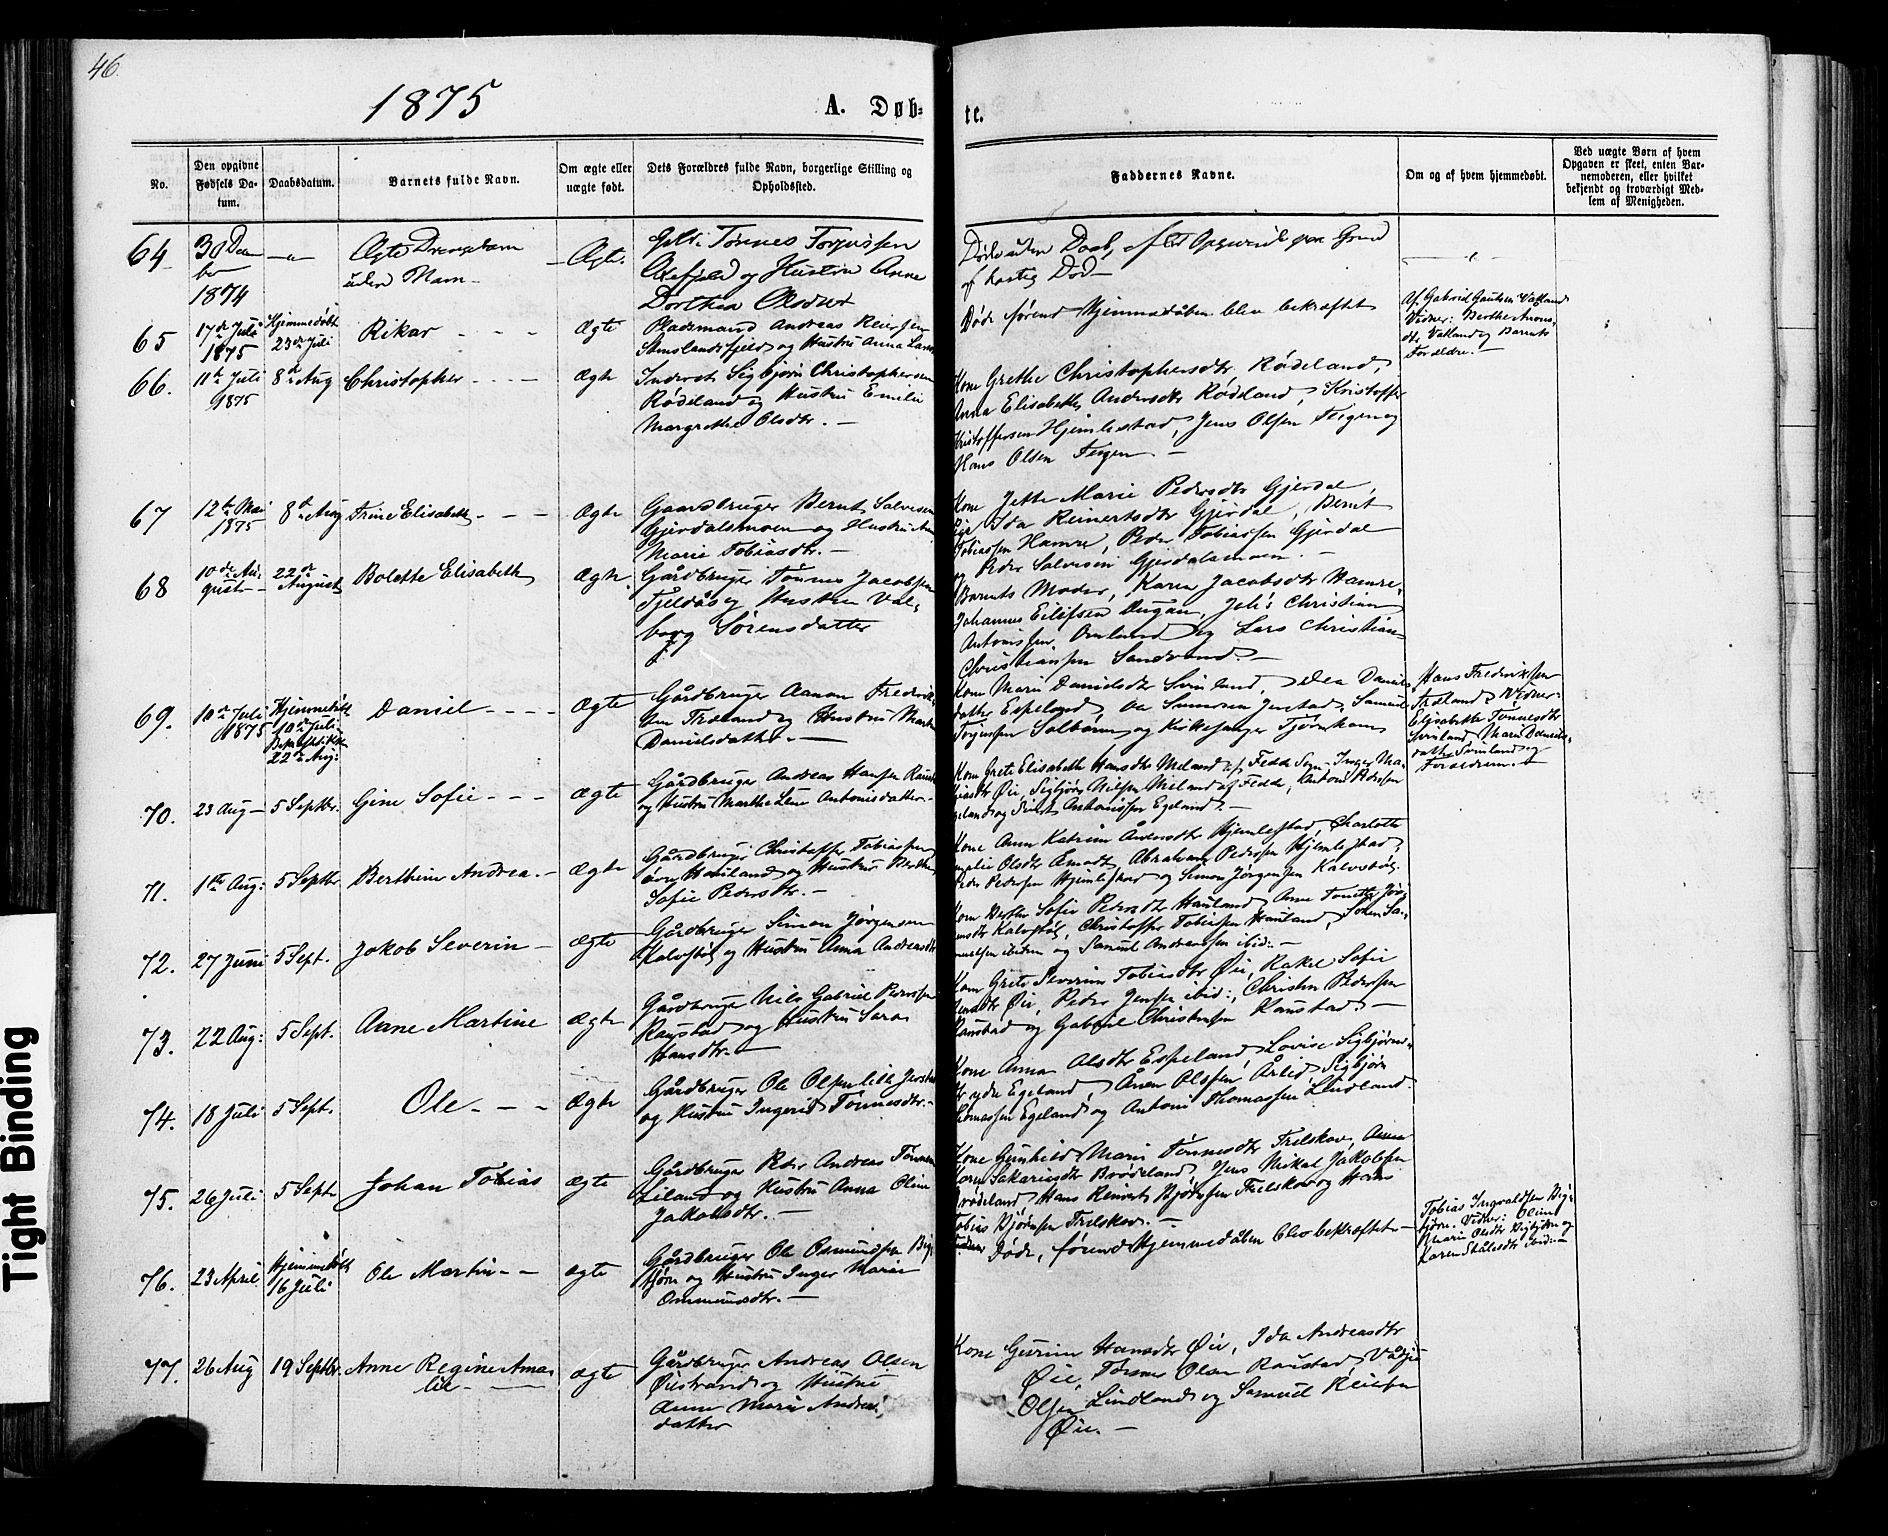 46.
1875
A. Døb-
te.
No.
Den opgivne Fødsels Da-tum.
Daabsdatum.
Barnets fulde Navn.
Om ægte eller uægte født.
Dets Forældres fulde Navn, borgerlige Stilling og Opholdssted.
Faddernes Navne.
Om og af hvem hjemmedøbt.
Ved uægte Børn af hvem Opgaven er skeet, enten Bar-nemoderen, eller hvilket bekjendt og troværdigt Med-lem af Menigheden.
64
1874
Ægte
uden Navn
Ægte.
Tønnes Torjussen
og Hustru Anne
Dorthea Olsdtr
Døde uden Daab,
af hastig Død
65
17de Juli
1875
Hjemmedøbt
23de Juli
Rikar
Ægte
Pladsmand Andreas Reiersen
og Hustru Anna
Døde førend Hjemmedåben blev bekræftet
Af Gabriel
Vatland
Vidner: Berthe
Vatland og Barnets
Forældre.
66.
11te Juli
1875
8de Aug
Christopher
Ægte
Inderst Sigbjørn Christophersen
Rødeland og Hustru Emilie
Margrethe Olsdtr.
Kone Grethe Christophersdtr Rødeland,
Anna Elisabeth Andersdtr Rødland, Kristoffer
Kristoffersen Hjemlestad, Jens Olsen Feigen og
Hans Olsen Feigen
67
12te Mai
1875
8de Aug
Trine Elisabeth
Ægte
Gaardbruger Bernt Salvesen
Gjerdalsmoen og Hustru
Marie Tobiasdtr.
Kone Jette Marie Pedersdtr Gjerdal,
Ida Reinertsdtr Gjerdal, Bernt
Tobiassen Hamre, Peder Tobiassen Gjerdal
og Peder Salvesen Gjerdalsmoen.
68
10de Au-
gust
22de
August
Bolette Elisabeth
Ægte
Gårdbruger Tønnes Jacobsen
Fjeldås og Hustru Val-
borg Sørensdatter
Barnets Moder, Karen Jacobsdtr Hamre,
Johannes Eilifsen Dugan, Johs Christian
Antonissen Omland og Lars Christian
Christianssen Sandvand.
69.
10de Juli
1875
Hjemmedøbt
10de Juli
22de Aug:
Daniel
Ægte
Gårdbruger Aanon Fredrik-
sen Træland og Hustru Marthe
Danielsdatter.
Kone Marie Danielsdtr Svinland,
datter Espeland, Samuel
Torjussen Solbørn og Kirkesanger Tjørnhom
Hans Fredrikssen
Træland. Vidner:
Elisabeth Tønnesdtr
Svinland, Marie Daniels-
datter Svinland og
Forældrene.
70.
23 Aug
5 Septbr.
Gine Sofie
Ægte
Gårdbruger Andreas Hansen
og Hustru Marthe Lene Antonisdatter
Kone Grete Elisabeth Hansdtr Meland af Fedde Sogn, Inger Ma-
Øie, Sigbjørn Nilsen Meland af Fedde, Antoni Pedersen
Egeland og Antonissen Egeland.
71.
1te Aug:
5 Septbr
Berthine Andrea
Ægte
Gårdbruger Christoffer Tobiassen
Hauland og Hustru Berthe
Sofie Pedersdtr.
Kone Anne Katrine Åndersdtr Hjemlestad, Charlotte
Amalie Olsdtr Åmodt, Abraham Pedersen Hjemlestad,
Peder Pedersen Hjemlestad og Simon Jørgensen Kalvstøl.
72.
27 Juni
5 Sept.
Jakob Severin
Ægte
Gårdbruger Simon Jørgensen
Kalvstøl og Hustru Anna Andreasdtr
Kone Berthe Sofie Pedersdtr Hauland, Anne Tonette Jør-
Kalvstøl, Christoffer Tobiassen Hauland, Søren Sa-
muelsen ibidem og Samuel Andreassen ibid:
73.
22 Aug:
5 Sept.
Anne Martine
Ægte
Gårdbruger Nils Gabriel Pedersen
Raustad og Hustru Sara
Hansdtr.
Kone Grete Severine Tobiasdtr Øie, Rakel Sofie
Øie, Peder Jensen ibid:, Christen Pedersen
Raustad og Gabriel Christensen Raustad.
74.
18 Juli
5 Sept.
Ole
Ægte
Gårdbruger Ole Olsen
og Hustru Ingerid Tønnesdtr.
Kone Anna Olsdtr Espeland, Lovise Sigbjørns-
Egeland, Ånen Olssen Årlid, Sigbjørn
Thomassen Egeland og Antoni Thomassen Lindland.
75.
26 Juli
5 Septr
Johan Tobias
ægte
Gårdbruger Peder Andreas Tønnesen
Eiland og Hustru Anna Oline
Jakobsdtr.
Kone Gunhild Marie Tønnesdtr Frelskov, Anne
Karen Sakariasdtr Brødeland, Jens Mikal Jakobsen
Brødeland, Hans Reinert Bjørnsen Frelskov og Hans
Tobias Bjørnsen Frelskov.
76.
23 April.
Hjemmedøbt
16 Juli
Ole Martin
ægte
Gårdbruger Ole Osmundsen
og Hustru Inger Marie
Ommundsdtr.
Døde, førend Hjemmedåben blev bekræftet
Tobias Ingvaldsen
Vidner: Oline
Marie Olsdtr
og
Karen ibid:
77.
26 Aug
19 Septbr.
Anne Regine Ama-
lie
ægte
Gårdbruger Andreas Olsen
Øiestrand og Hustru
Anne Marie Andreas-
datter
Kone Gurine Hansdtr Øie, Ida Andreasdtr
Øie, Tønnes Olsen Raustad,
Olsen Lindland og Samuel Reiersen
Øie.
Tight Binding